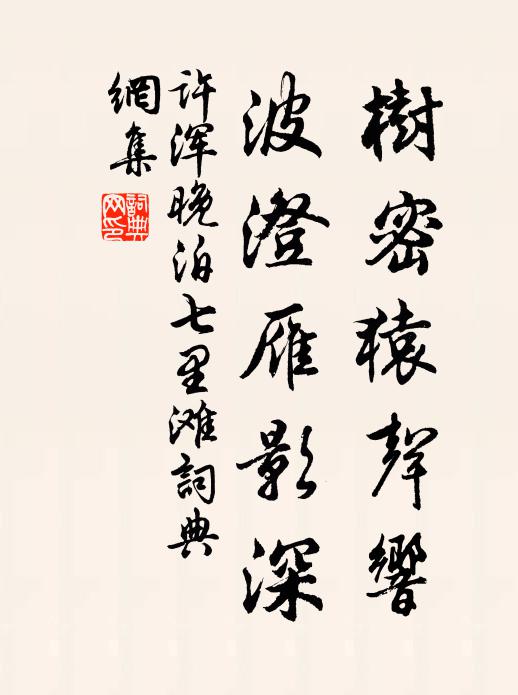 樹密猿聲響
波澄雁影深
許渾晚泊七里滩詞典
網集
詞典
网印